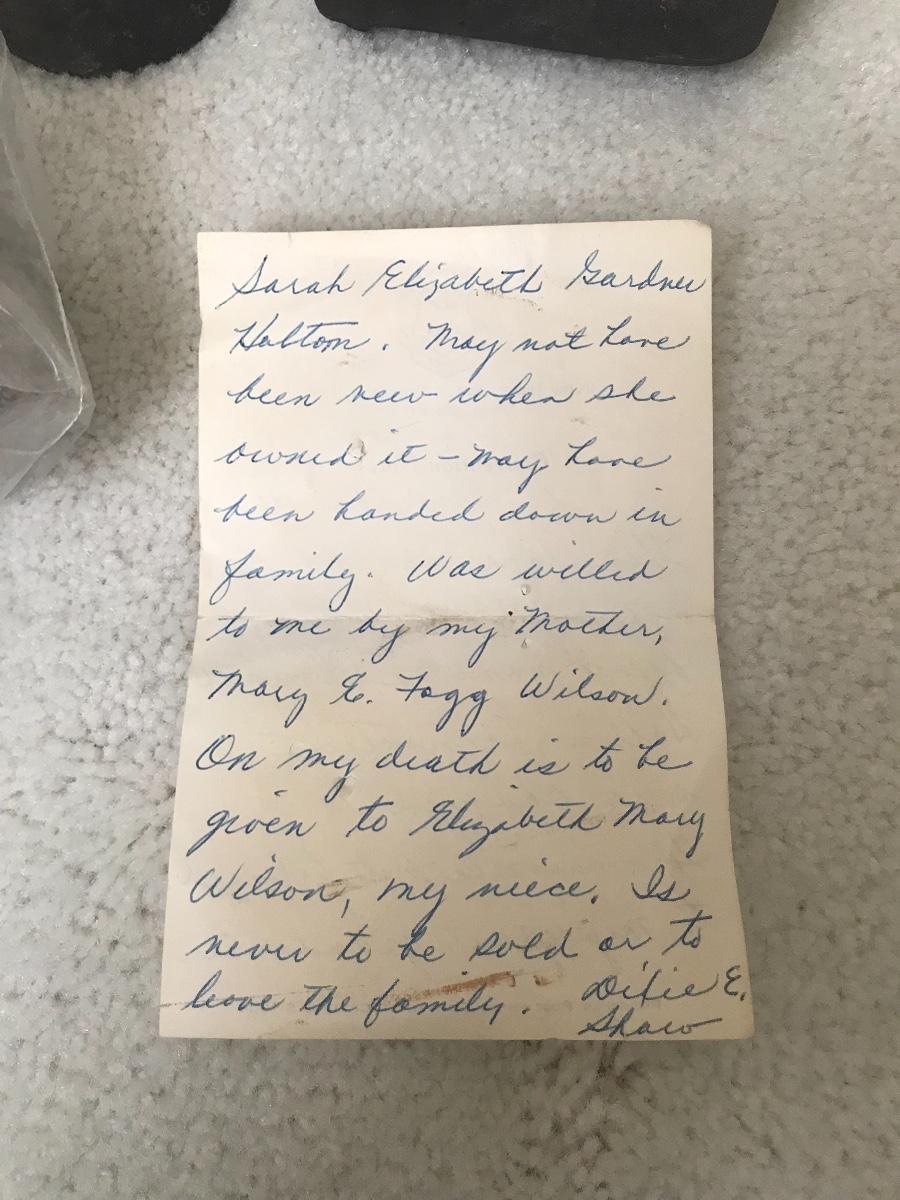 Sarah Elizabeth Gardner
Holtom. May not have
been new when she
owned it – may have
been handed down in
family. Was willed
to me by my Mother,
Mary E. Fogg Wilson.
On my death is to be
given to Elizabeth Mary
Wilson, my niece. Is
never to be sold or to
leave the family. Dixie E.
Shaw